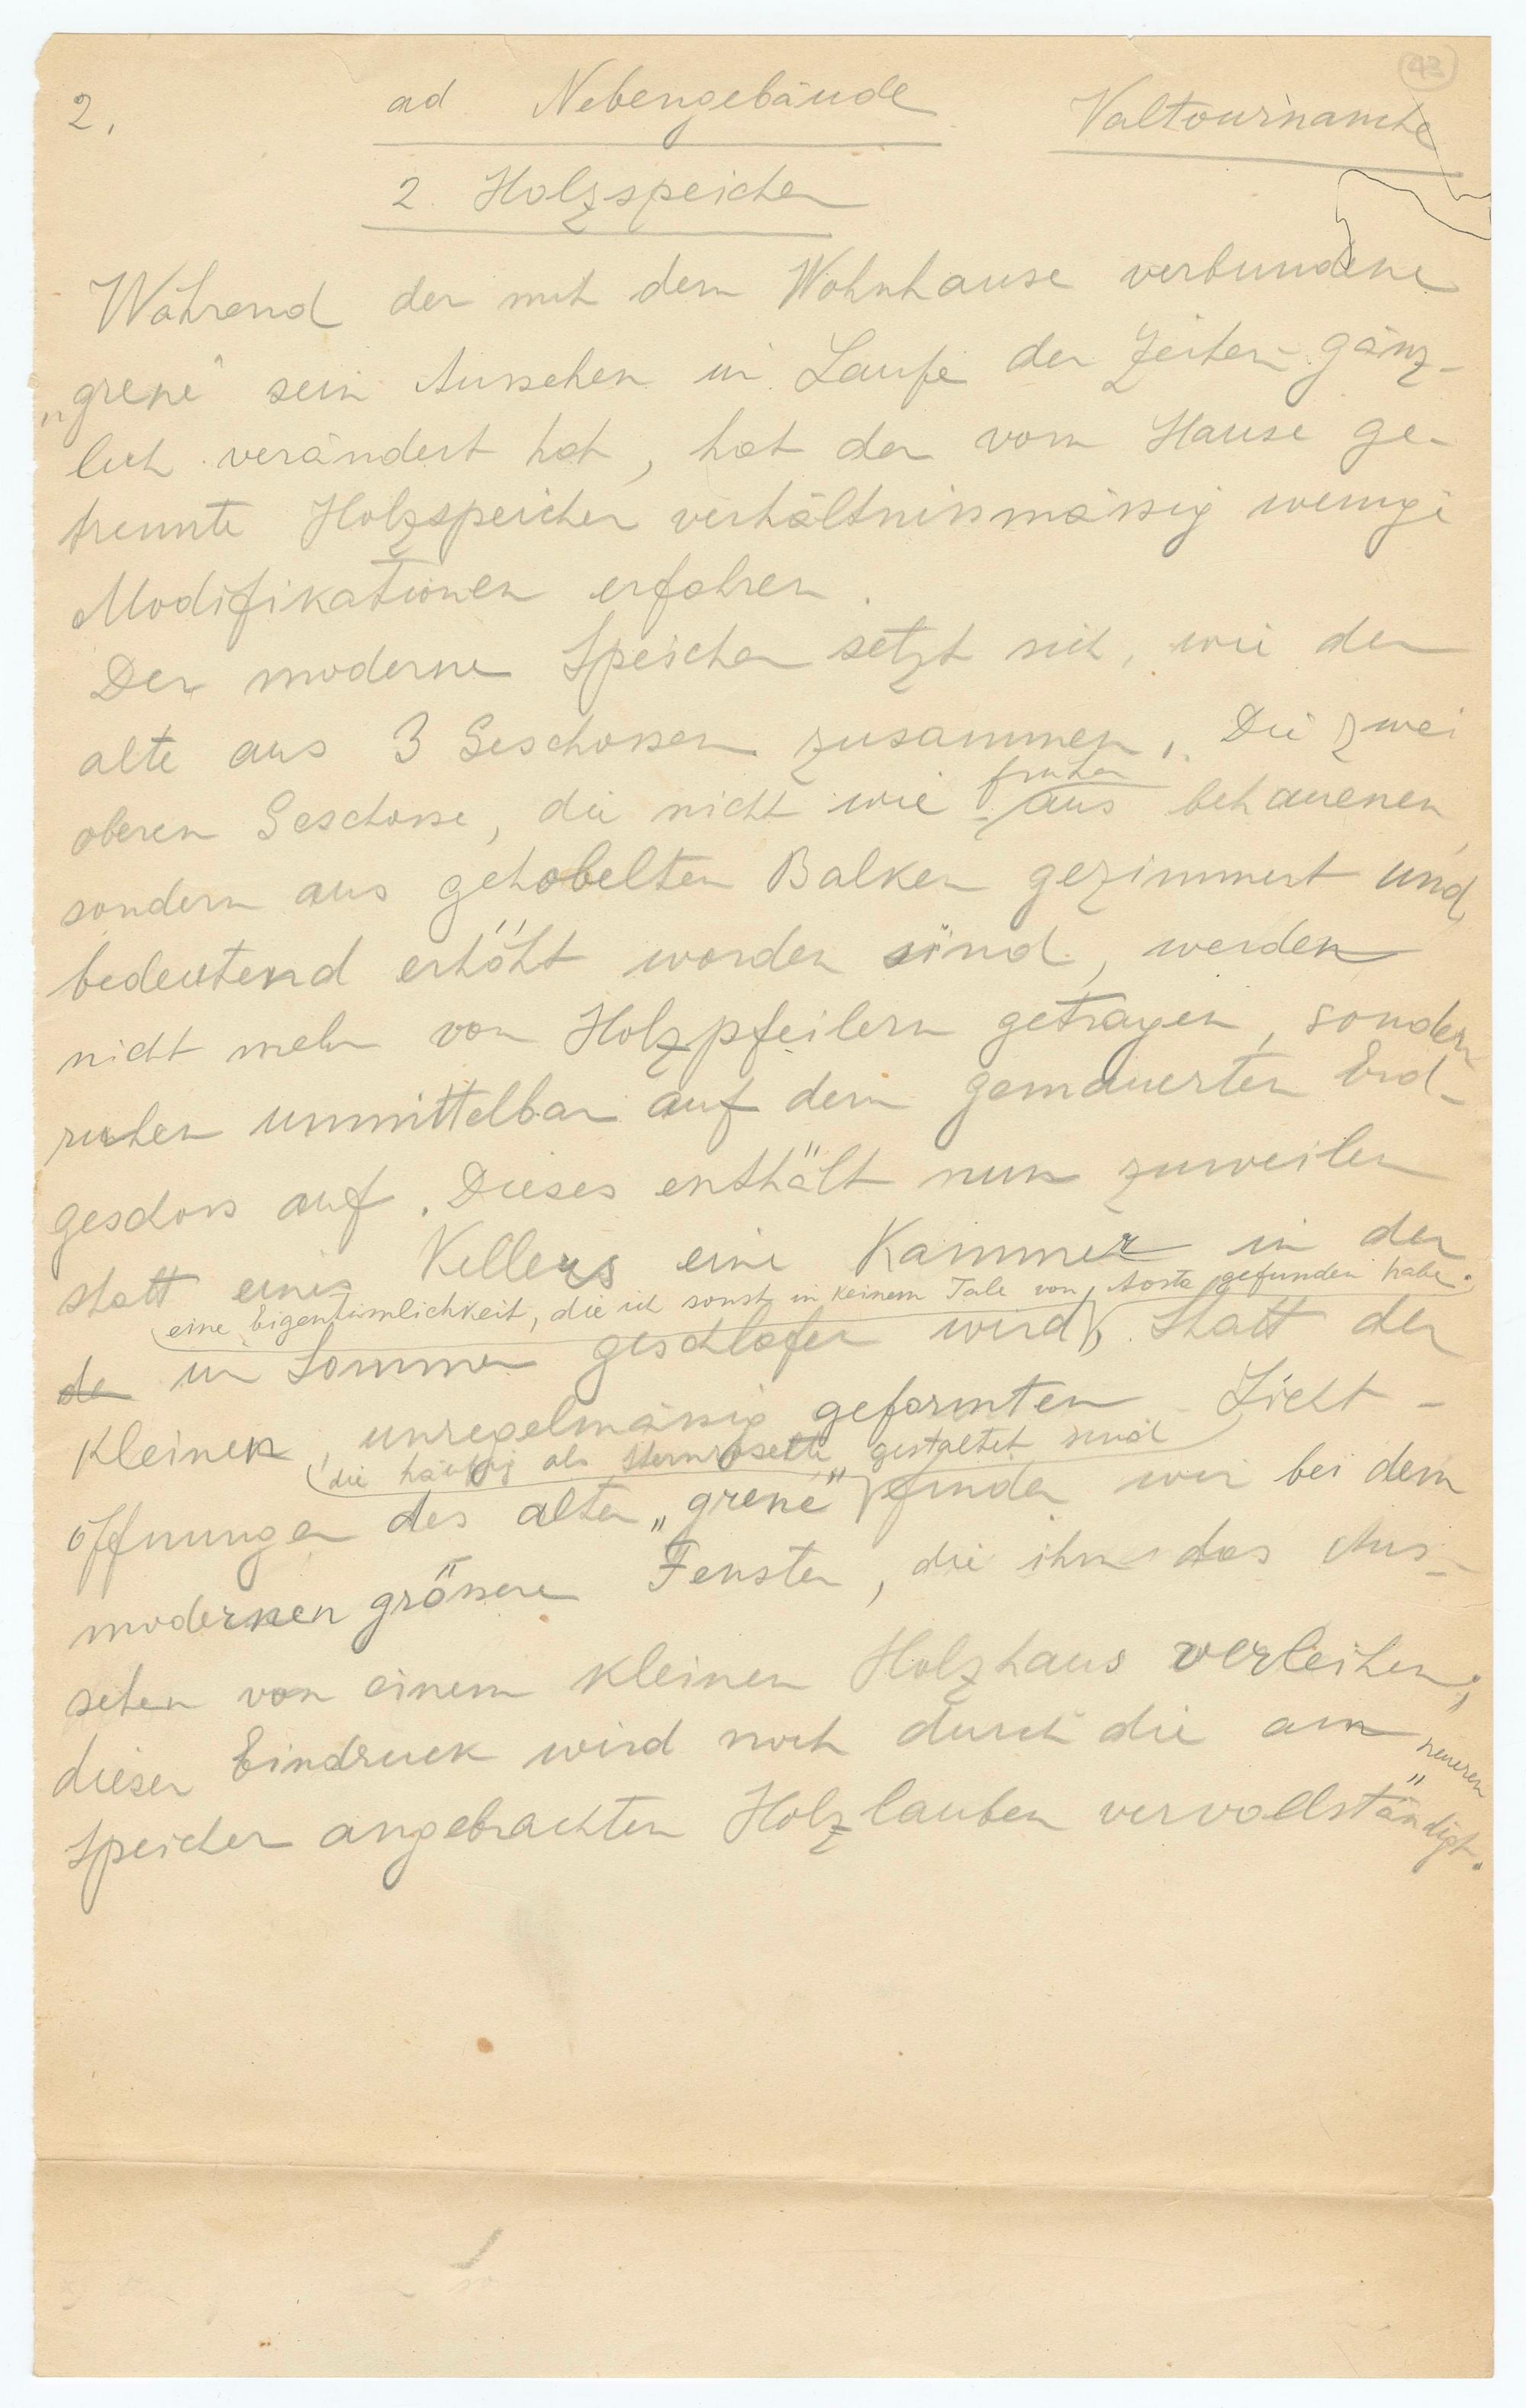 43
2. ad Nebengebäude Valtournanche
2. Holzspeicher
Während der mit dem Wohnhause verbundene
„grenê" sein Aussehen im Laufe der Zeiten gänz-
lich verändert hat, hat der vom Hause ge-
trennte Holzspeicher verhältnissmässig wenige
Modifikationen erfahren.
Der moderne Speicher setzt sich, wie der
alte aus 3 Geschossen zusammen. Die zwei
früher
oberen Geschosse, die nicht wie aus behauenen
sondern aus gehobelten Balken gezimmert und
bedeutend erhöht worden sind, werden
nicht mehr von Holzpfeilern getragen, sondern
ruhen unmittelbar auf dem gemauerten Erd-
geschoss auf. Dieses enthält nun zuweilen
statt eines Kellers eine Kammer in der
eine Eigentümlichkeit, die ich sonst in keinem Tale von Aosta gefunden habe.
da im Sommer geschlafen wird, Statt der
kleinen, unregelmässig geformten Licht-
die häufig als Sternrosette gestaltet sind
öffnungen des alten „grenê" finden wir bei dem
modernen grössere Fenster, die ihm das Aus-
sehen von einem kleinen Holzhaus verleihen;
dieser Eindruck wird noch durch die am neueren
Speicher angebrachten Holzlauben vervollständigt.